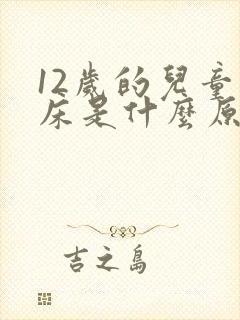 12歲的兒童
床是什麼原
吉之島